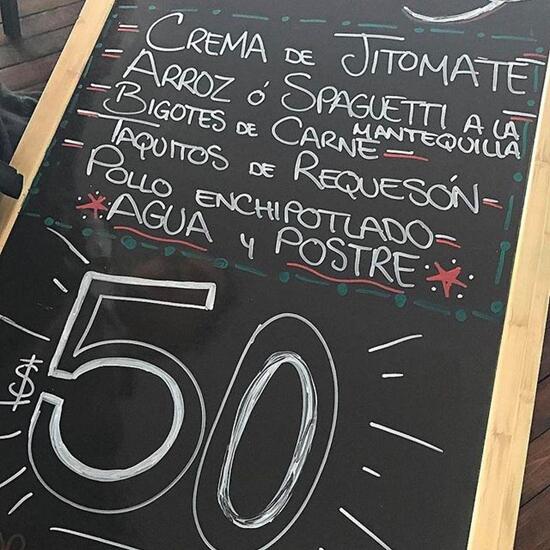 CREMA DE JITOMATE
ARROZ Ó SPAGUETTI A LA MANTEQUILLA
BIGOTES DE CARNE
TAQUITOS DE REQUESÓN
POLLO ENCHIPOTLADO
AGUA Y POSTRE
$50